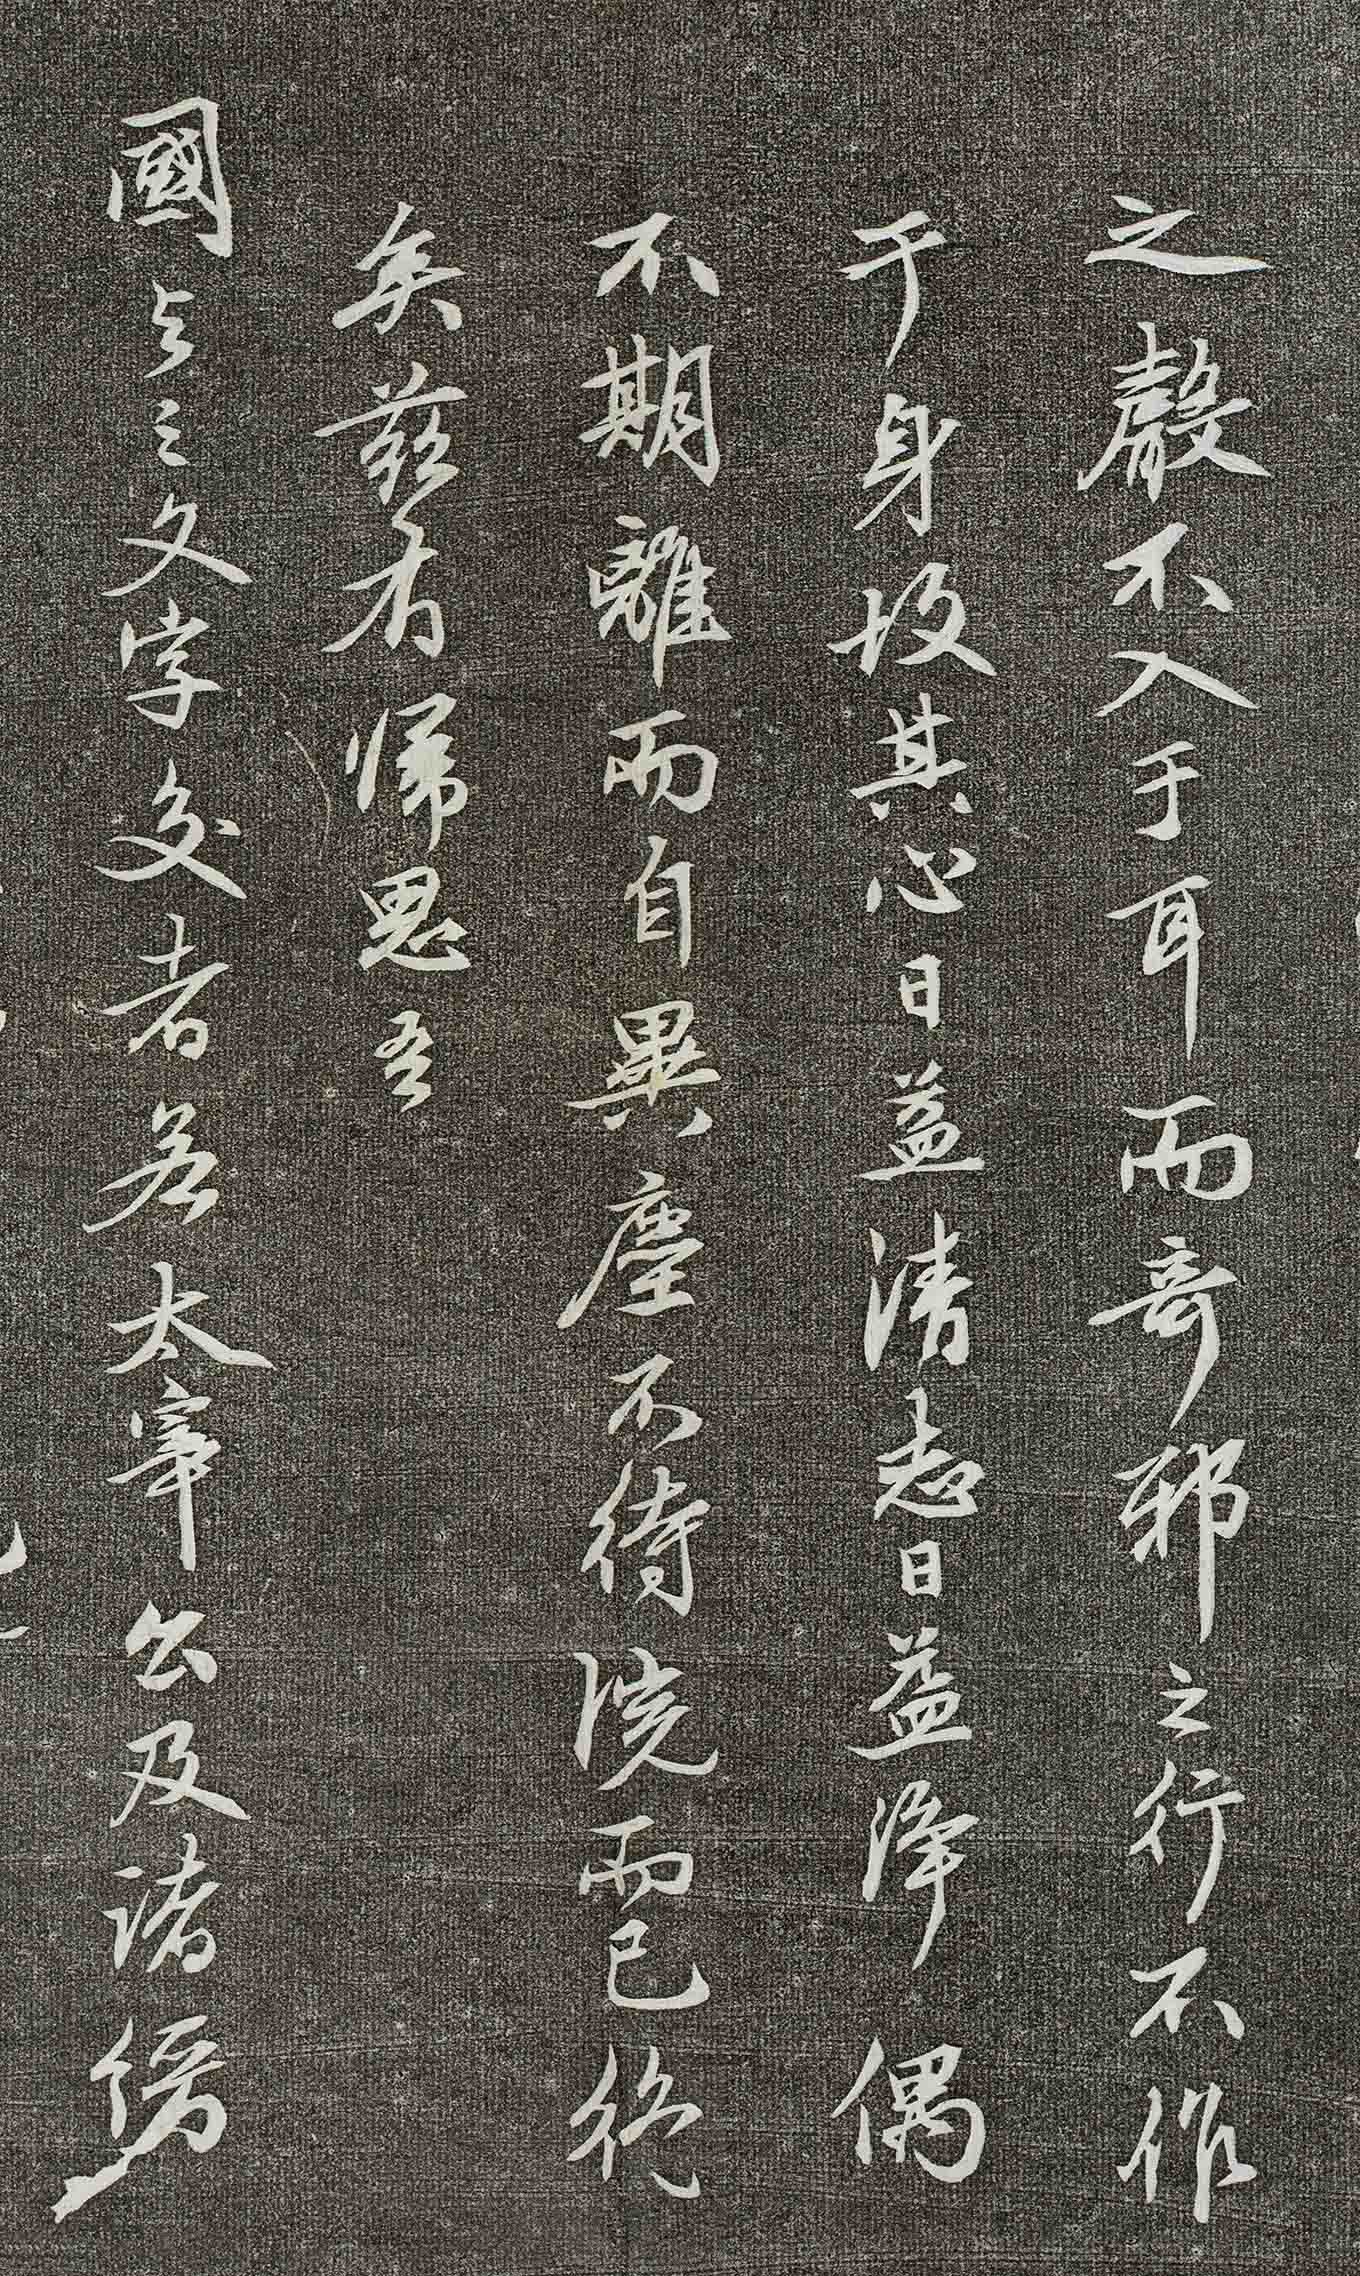 之聲不入于耳而奇邪之行不作
于身故其心日益清志日益淨偶
不期離而自異塵不待浣而已絕
矣茲有帰思吾
國与之文字交者若太宰公及諸縉